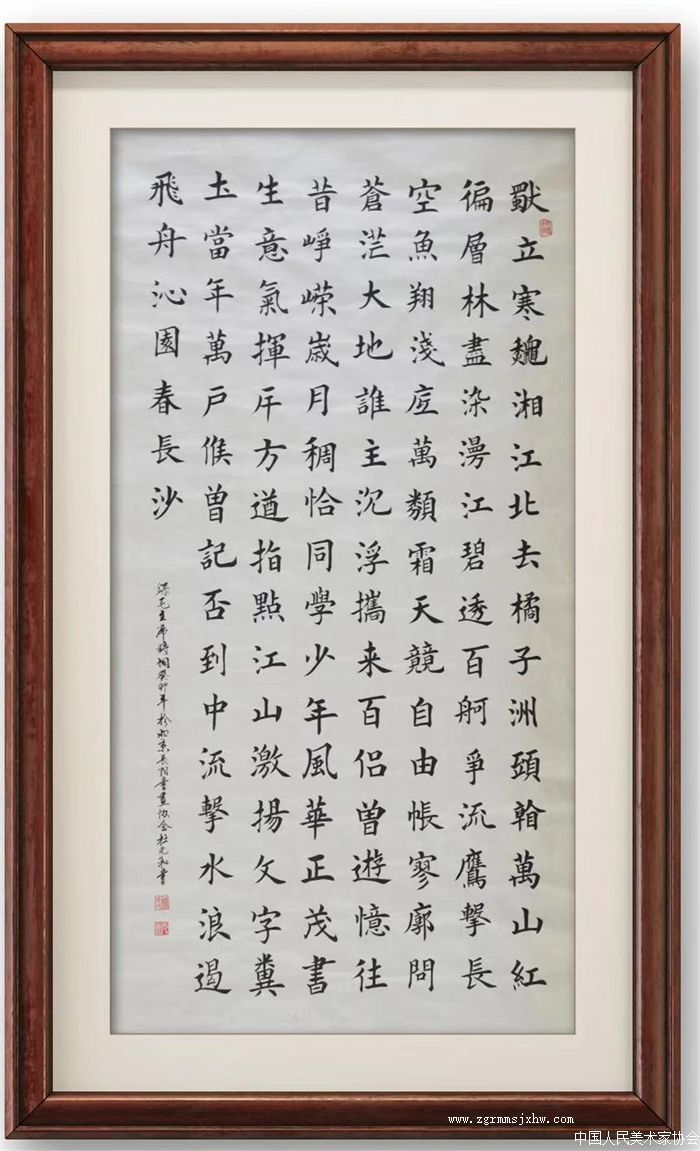 獨立寒龝湘江北去橘子洲頭看萬山紅
徧層林盡染漫江碧透百舸爭流鷹擊長
空魚翔淺底萬類霜天競自由悵寥廓問
蒼茫大地誰主沉浮攜来百侣曾遊憶往
昔崢嶸嵗月稠恰同學少年風華正茂書
生意氣揮斥方遒指點江山激揚文字糞
土當年萬戶侯曾記否到中流擊水浪遏
飛舟沁園春長沙
毛主席詩詞癸卯年於北京長阳書畫协会杜元和書
www.zgrmmsjxhw.com
中国人民美术家协会